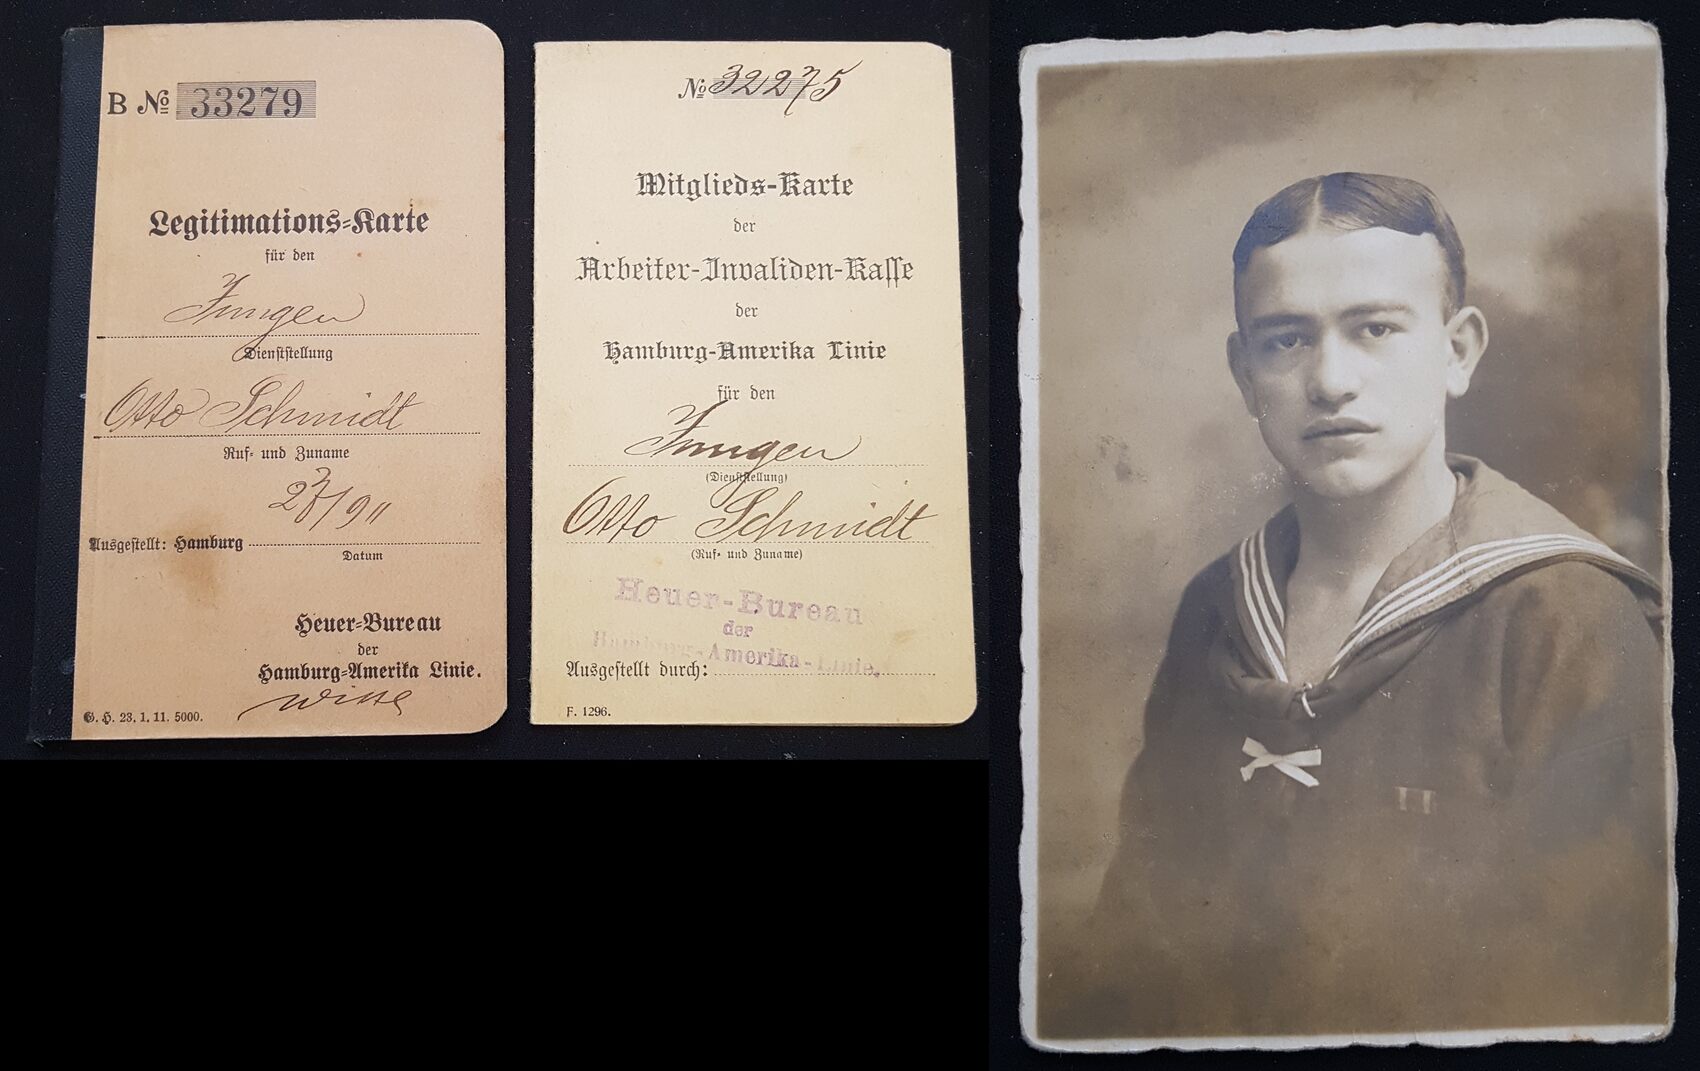 B No 33279
Legitimations-Karte
für den
Jungen
Dienststellung
Otto Schmidt
Ruf- und Zuname
Ausgestellt: Hamburg
Datum
Heuer-Bureau
der
Hamburg-Amerika Linie.
Witte
G. H. 23. 1. 11. 5000.
No 32275
Mitglieds-Karte
der
Arbeiter-Invaliden-Kasse
der
Hamburg-Amerika Linie
für den
Jungen
(Dienststellung)
Otto Schmidt
(Ruf- und Zuname)
Heuer-Bureau
der
Hamburg-Amerika-Linie.
Ausgestellt durch:
F. 1296.